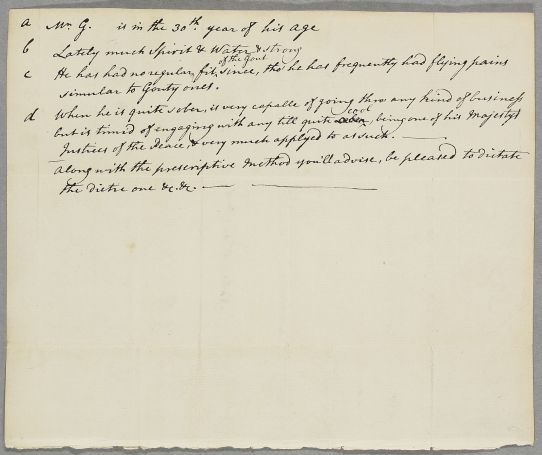 a Mr. G. is in the 30th. year of his age
b Lately much Spirit & Water & strong
of the Gout
c He has had no regular fit, since, tho' he has frequently had flying pains
simular to Gouty ones.
d When he is quite sober, is very capable of going thro any kind of business
cool
but is timid of engaging with any till quite sober, being one of his Majestys
Justices of the Peace, & very much applyed to as such. —
Along with the prescriptive Method you'll advise, be pleased to dictate
the dietre one &c. &c. — —